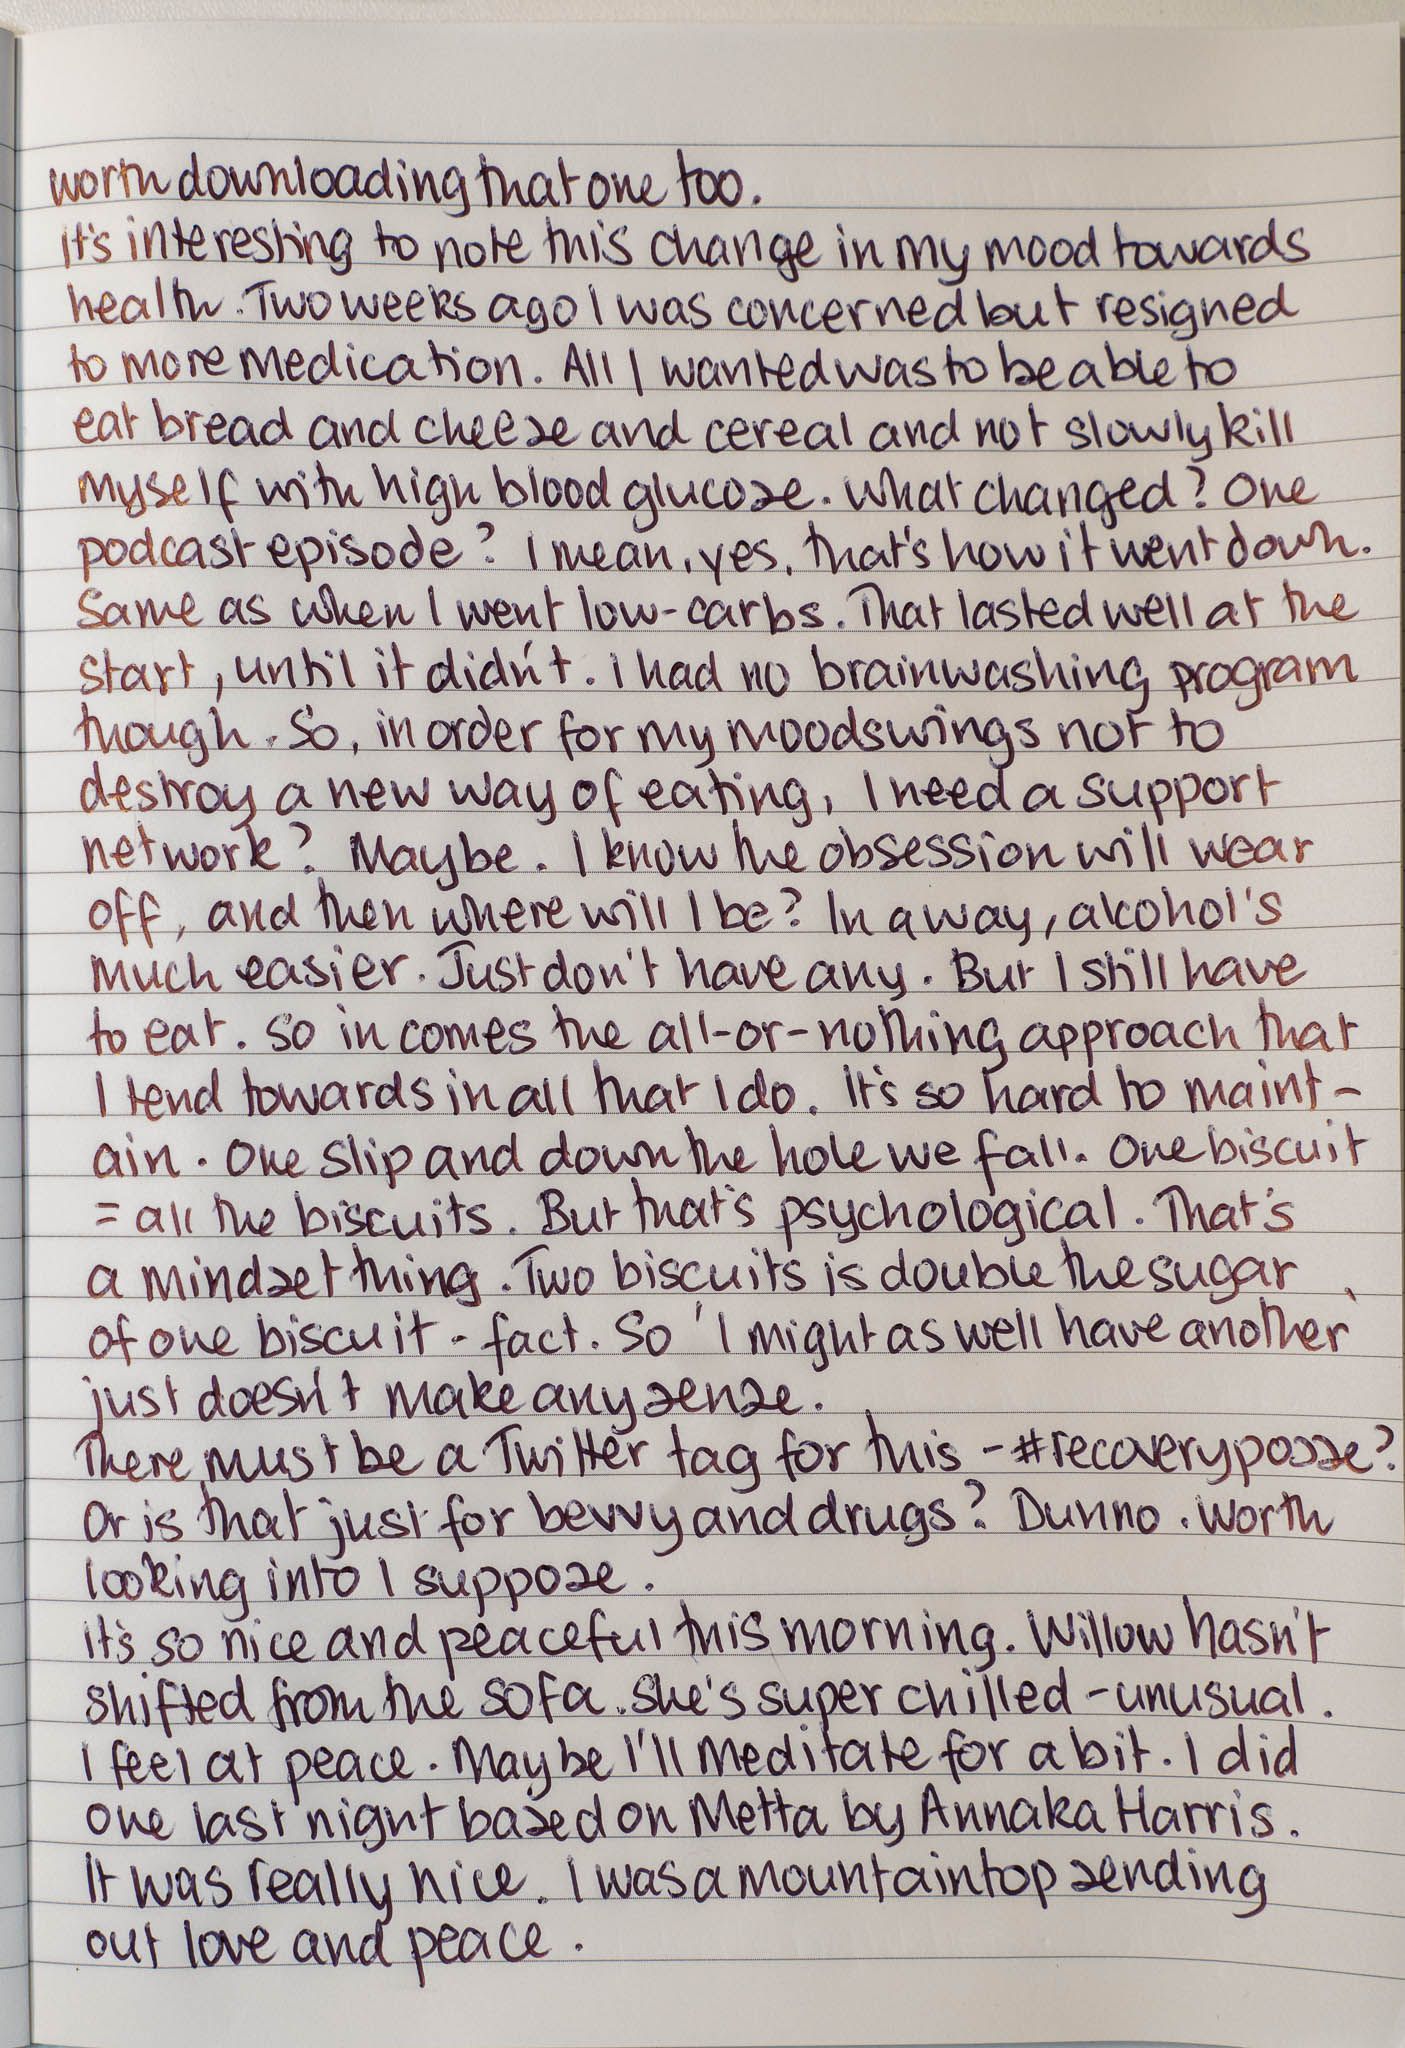 worth downloading that one too.
It's interesting to note this change in my mood towards
health. Two weeks ago I was concerned but resigned
to more medication. All I wanted was to be able to
eat bread and cheese and cereal and not slowly kill
myself with high blood glucose. What changed? One
podcast episode? I mean, yes, that's how it went down.
Same as when I went low-carbs. That lasted well at the
start, until it didn't. I had no brainwashing program
though. So, in order for my moodswings not to
destroy a new way of eating, I need a support
network? Maybe. I know the obsession will wear
off, and then where will I be? In a way, alcohol's
much easier. Just don't have any. But I still have
to eat. So in comes the all-or-nothing approach that
I tend towards in all that I do. It's so hard to maint-
ain. One slip and down the hole we fall. One biscuit
= all the biscuits. But that's psychological. That's
a mindset thing. Two biscuits is double the sugar
of one biscuit - fact. So 'I might as well have another'
just doesn't make any sense.
There must be a Twitter tag for this - #recoveryposse?
Or is that just for bevvy and drugs? Dunno. Worth
looking into I suppose.
It's so nice and peaceful this morning. Willow hasn't
shifted from the sofa. She's super chilled - unusual.
I feel at peace. Maybe I'll meditate for a bit. I did
one last night based on Metta by Annaka Harris.
It was really nice. I was a mountaintop sending
out love and peace.